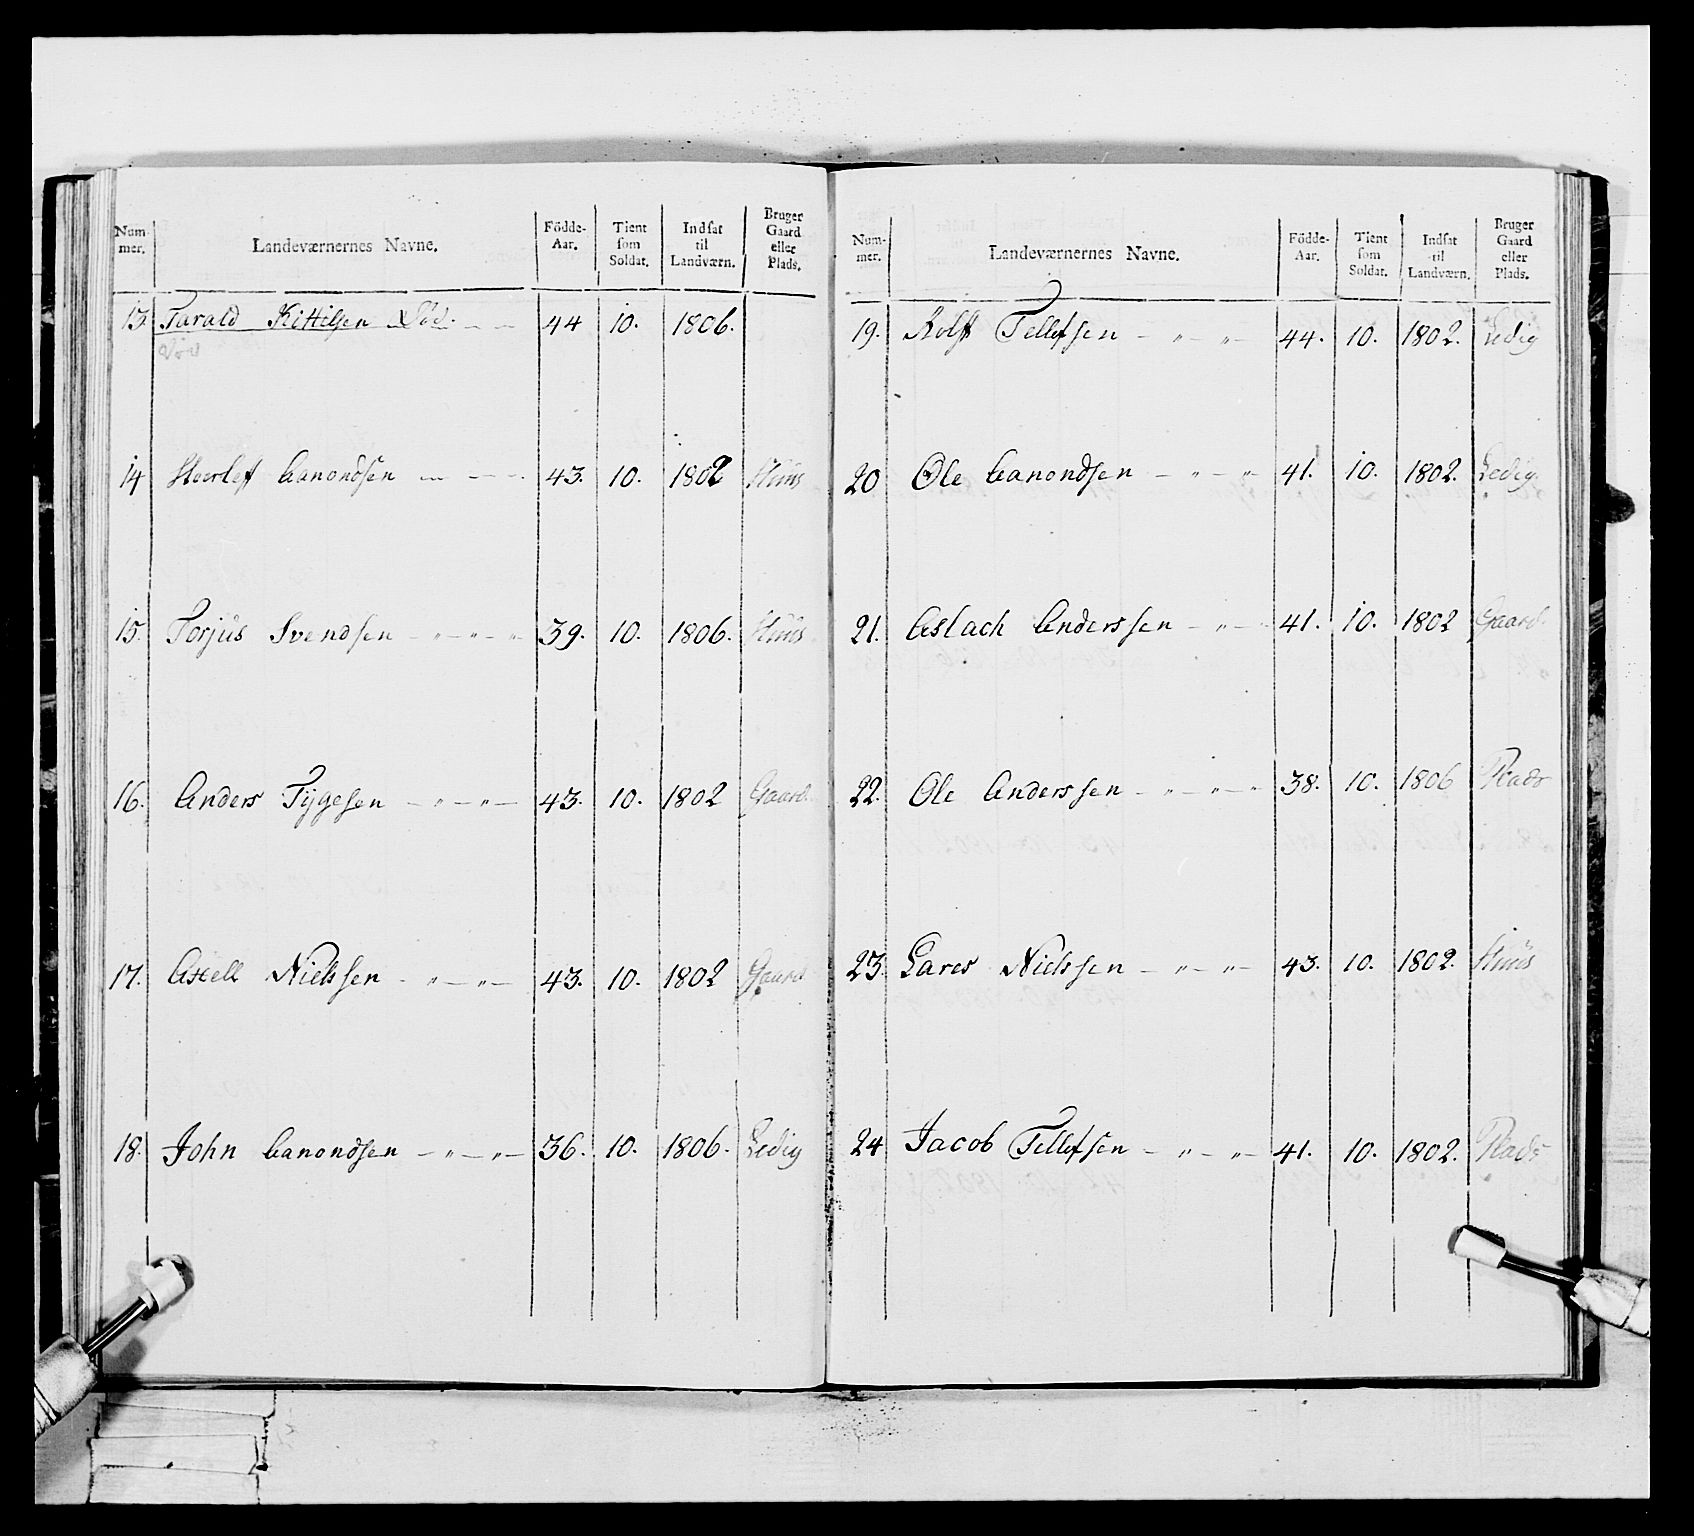 Num-
mer.
Landeværnernes Navne.
Födde-
Aar.
Tient
som
Soldat.
Indsat
til
Landværn.
Bruger
Gaard
eller
Plads.
13. Tarald Kittilsen Död. 44 10. 1806.
Död
14 Hverleff Aanondsen 43. 10. 1802 Huus
15. Torjus Svendsen 39. 10. 1806. Huus
16. Anders Tygesen 43. 10. 1802 Gaard.
17. Axell Nielssen 43. 10. 1802 Gaard
18. John Aanondsen 36. 10. 1806. Ledig
Num-
mer.
Landeværnernes Navne.
Födde-
Aar.
Tient
som
Soldat.
Indsat
til
Landværn.
Bruger
Gaard
eller
Plads.
19. Rolff Tellefsen 44. 10. 1802. Ledig
20 Ole Aanondsen 41. 10. 1802. Ledig.
21. Aslach Anderssen 41. 10. 1802 Gaard.
22. Ole Anderssen 38. 10. 1806 Plads
23. Lares Nielssen 43. 10. 1802. Huus
24 Jacob Tellefsen 41. 10. 1802. Plads